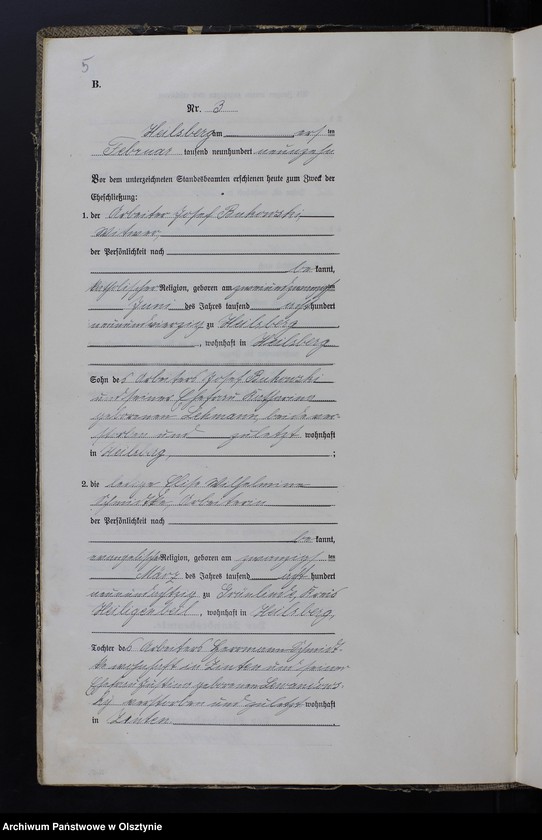 5
B.
Nr. 3
Heilsberg am ersten
Februar tausend neunhundert neunzehn
Vor dem unterzeichneten Standesbeamten erschienen heute zum Zweck der
Eheschließung:
1. der Arbeiter Josef Bukowski,
Witwer,
der Persönlichkeit nach
be kannt,
katholischer Religion, geboren am zweiundzwanzigsten
Juni des Jahres tausend acht hundert
neunundvierzig zu Heilsberg
, wohnhaft in Heilsberg
Sohn des Arbeiters Josef Bukowski
und seiner Ehefrau Katharina
geborenen Lehmann beide ver-
storben und zuletzt wohnhaft
in Heilsberg ;
2. die ledige Elise Wilhelmine
Schmidtke, Arbeiterin
der Persönlichkeit nach
be kannt,
evangelischer Religion, geboren am zwanzigsten
März des Jahres tausend acht hundert
neunundachtzig zu Grünlinde, Kreis
Heiligenbeil , wohnhaft in Heilsberg,
Tochter des Arbeiters Herrmann Schmidt-
ke wohnhaft in Zinten und seiner
Ehefrau Justine geborenen
verstorben und zuletzt wohnhaft
in Zinten .
Archiwum Państwowe w Olsztynie